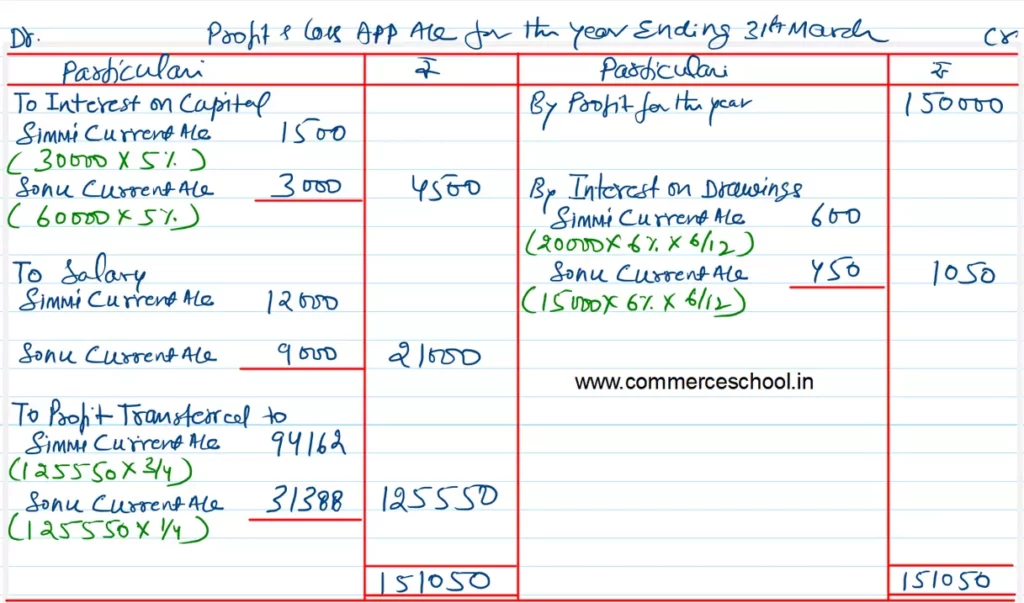 Profit & Loss App A/c for the year Ending 31st March
Dr. Cr
Particulars ₹ Particulars ₹
To Interest on Capital By Profit for the year 150000
Simmi Current A/c 1500
(30000 X 5%)
Sonu Current A/c 3000 4500 By Interest on Drawings
(60000 X 5%) Simmi Current A/c 600
(20000 X 6% X 6/12)
To Salary Sonu Current A/c 450 1050
Simmi Current A/c 12000 (15000 X 6% X 6/12)
Sonu Current A/c 9000 21000
www.commerceschool.in
To Profit Transferred to
Simmi Current A/c 94162
(125550 X 3/4)
Sonu Current A/c 31388 125550
(125550 X 1/4)
151050 151050